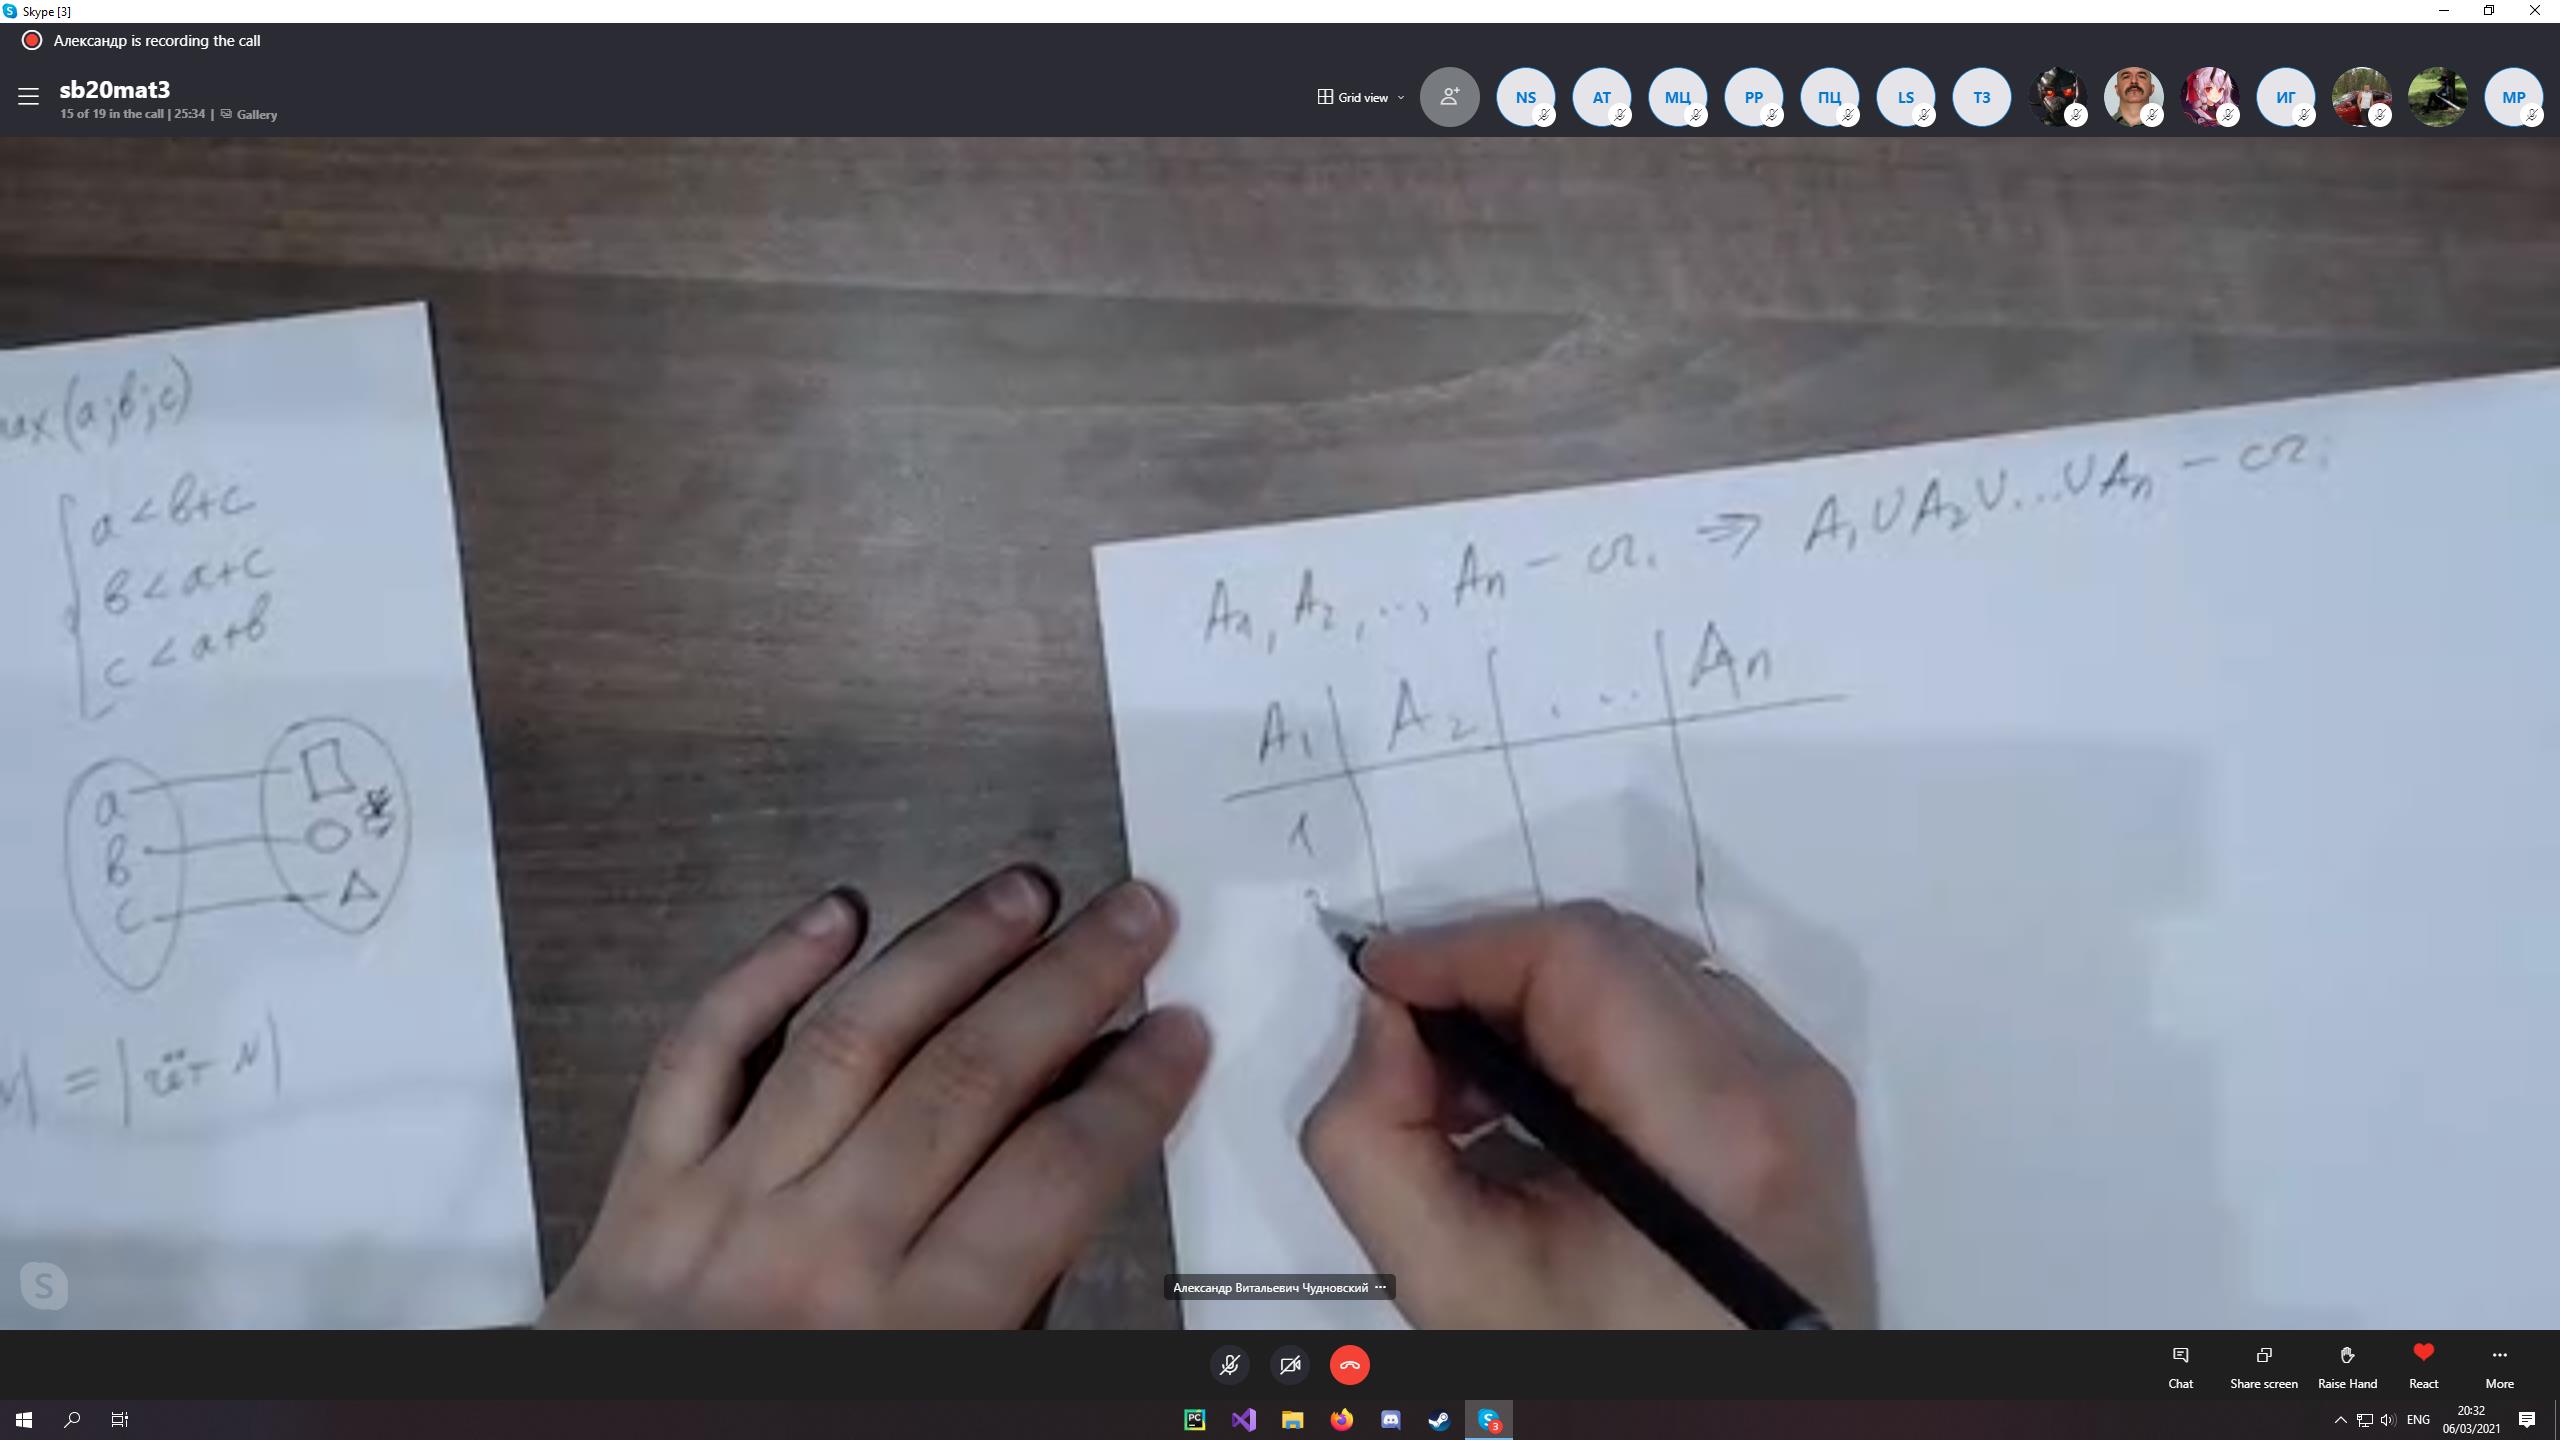 Skype [3]
Александр is recording the call
sb20mat3
15 of 19 in the call | 25:34 | Gallery
Grid view
NS
AT
МЦ
PP
ПЦ
LS
ТЗ
ИГ
MP
max(a;b;c)
a<b+c
b<a+c
c<a+b
a
b
c
N| = |чёт N|
A₁, A₂, ..., Aₙ – сч. ⇒ A₁∪A₂∪...∪Aₙ – сч.
A₁ | A₂ | ... | Aₙ
1
Александр Витальевич Чудновский ...
Chat
Share screen
Raise Hand
React
More
PC
3
ENG
20:32
06/03/2021